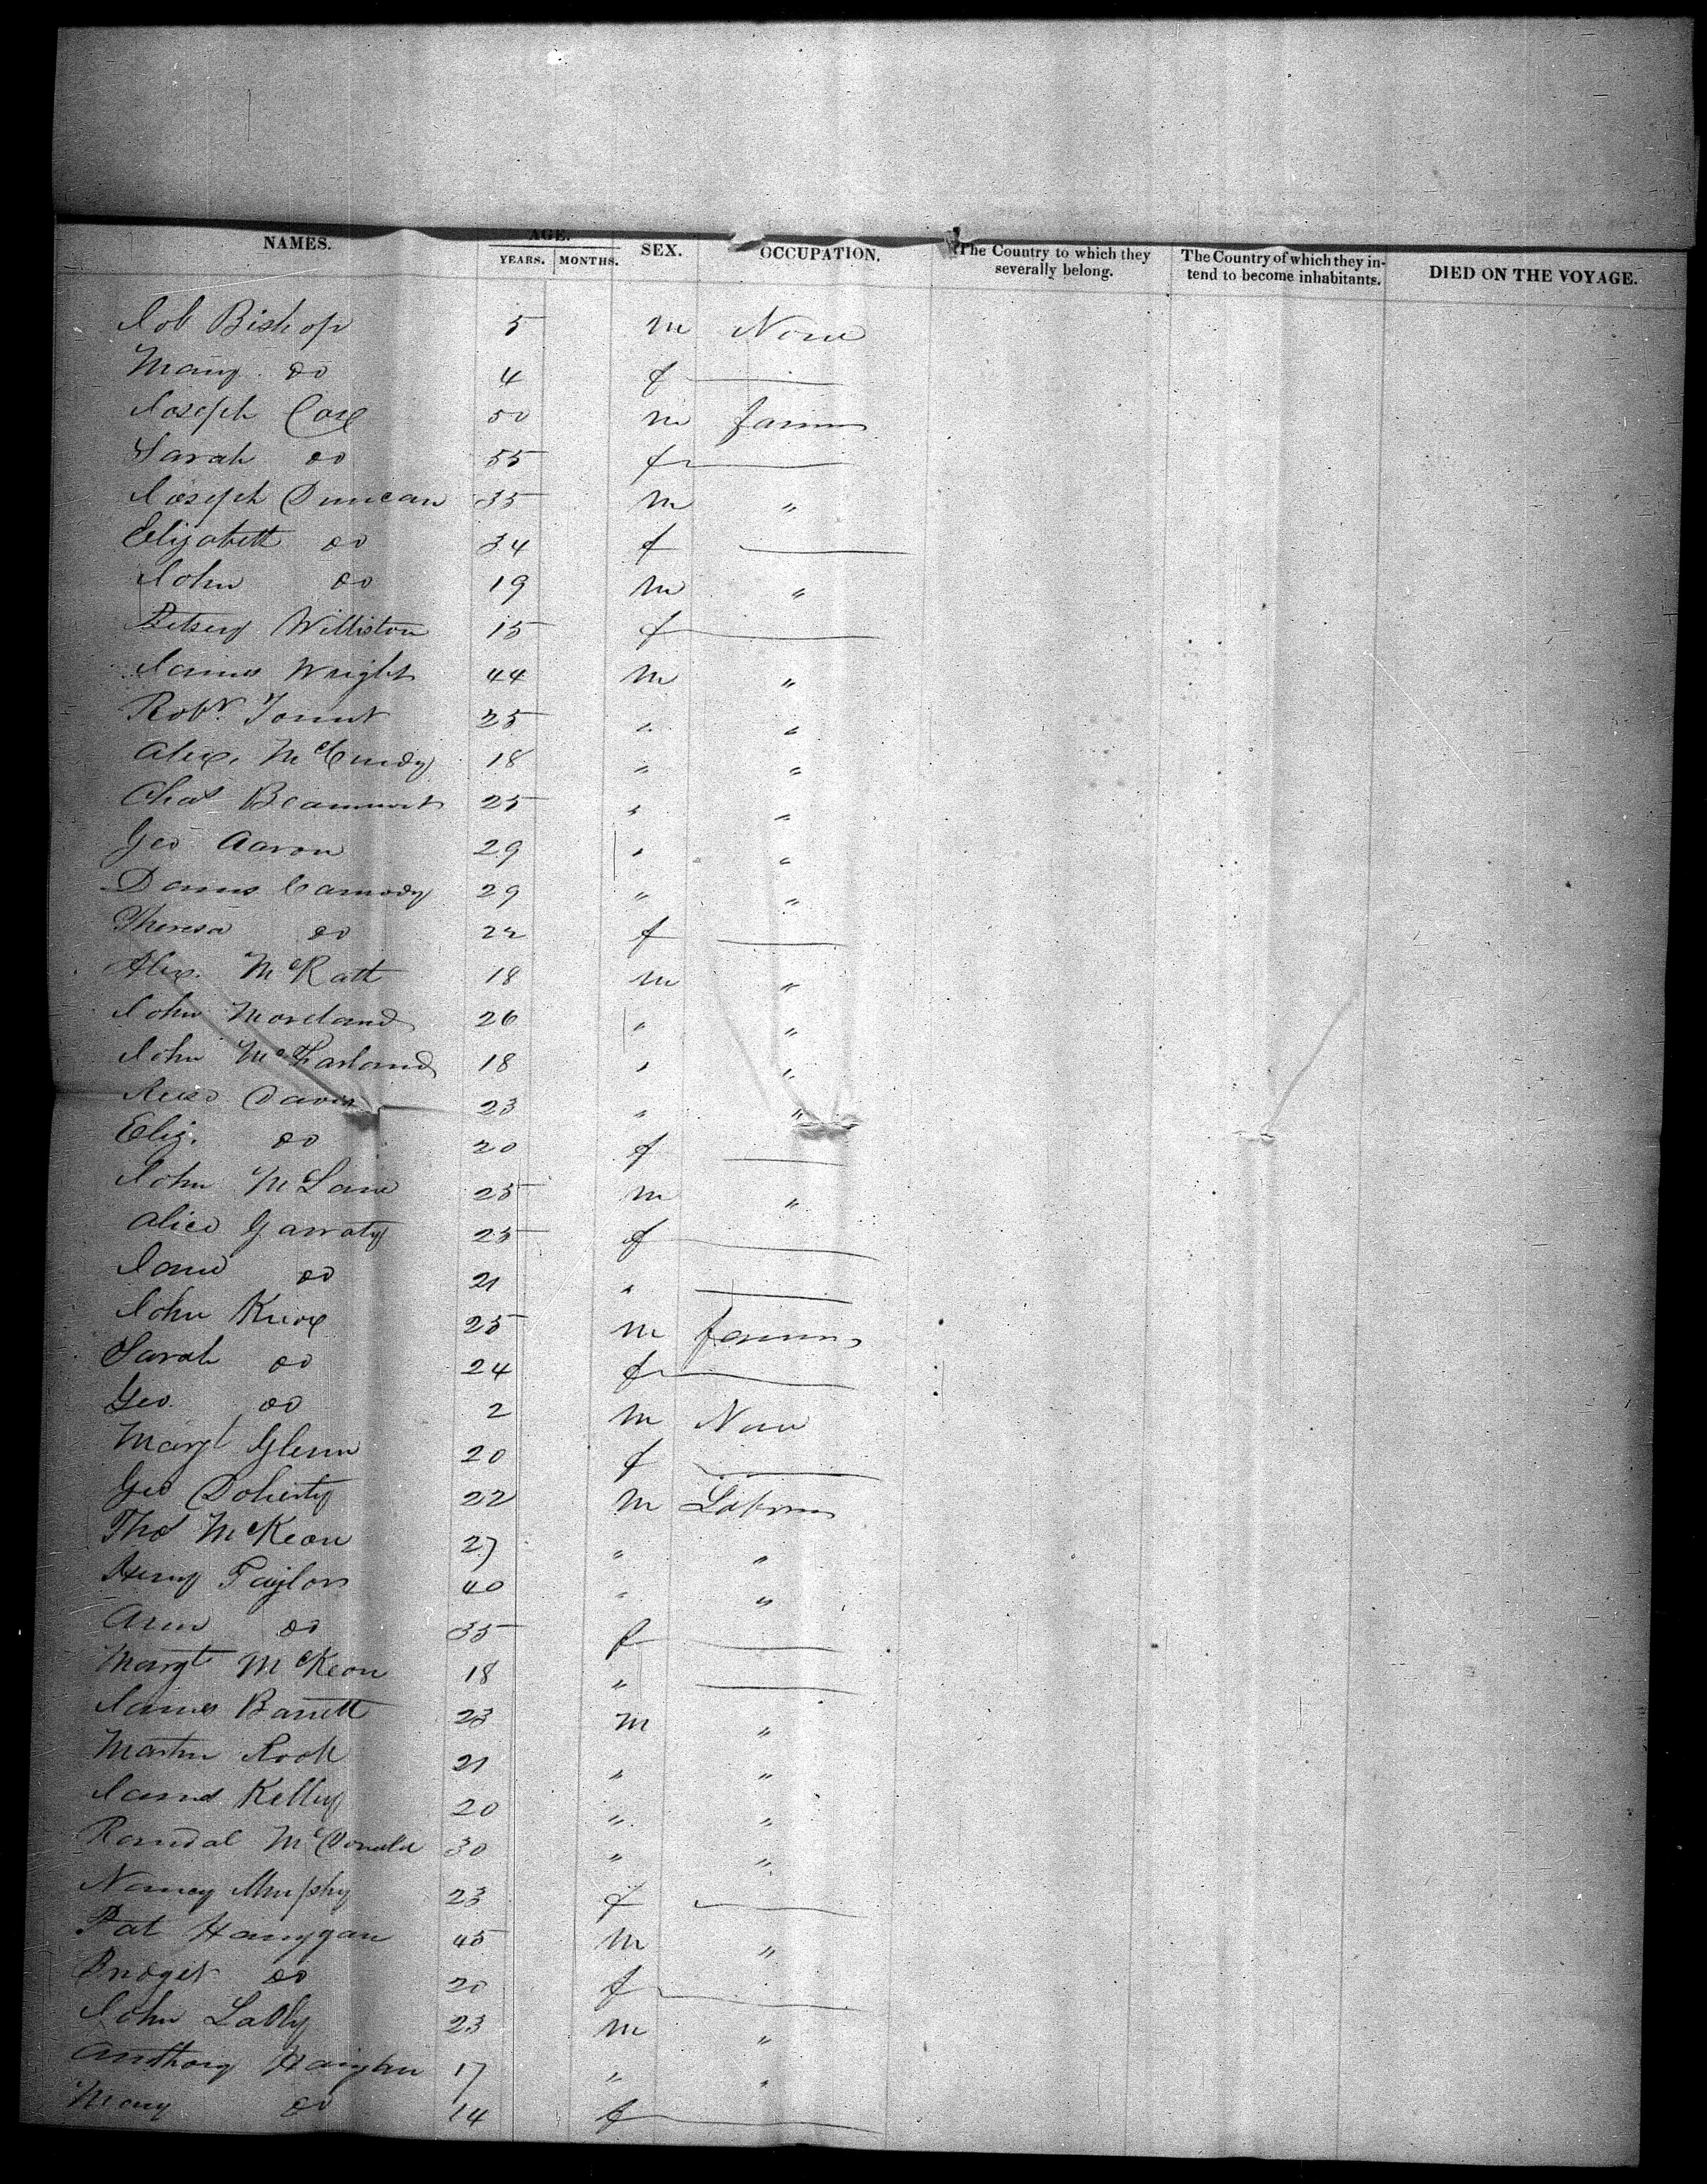 NAMES. AGE. YEARS. MONTHS. SEX. OCCUPATION. The Country to which they severally belong. The Country of which they intend to become inhabitants. DIED ON THE VOYAGE.
Job Bishop 5 m None
Mary do 4 f
Joseph Cox 50 m farmer
Sarah do 55 f
Joseph Duncan 35 m "
Elizabeth do 34 f
John do 19 m "
Betsey Williston 15 f
James Wright 44 m "
Robt. 25 " "
Alex. McCurdy 18 " "
Chas Beaumont 25 " "
Geo Aaron 29 " "
Dennis Carmody 29 " "
Theresa do 22 f
Alex. McKatt 18 m "
John Moreland 26 " "
John McFarland 18 " "
Reese Davis 23 " "
Eliz. do 20 f
John McLane 25 m "
Alice Garraty 25 f
Jane do 21 "
John Knox 25 m farmer
Sarah do 24 f
Geo. do 2 m None
Margt Glenn 20 f
Geo Doherty 22 m Laborer
Thos McKeon 27 " "
Henry Taylor 40 " "
Ann do 35 f
Margt McKeon 18 "
James Barrett 23 m "
Martin Rook 21 " "
James Kelly 20 " "
Randal McDonald 30 " "
Nancy Murphy 23 f
Pat Hanygan 45 m "
Bridget do 20 f
John Lally 23 m "
Anthony 17 " "
Mary do 14 f